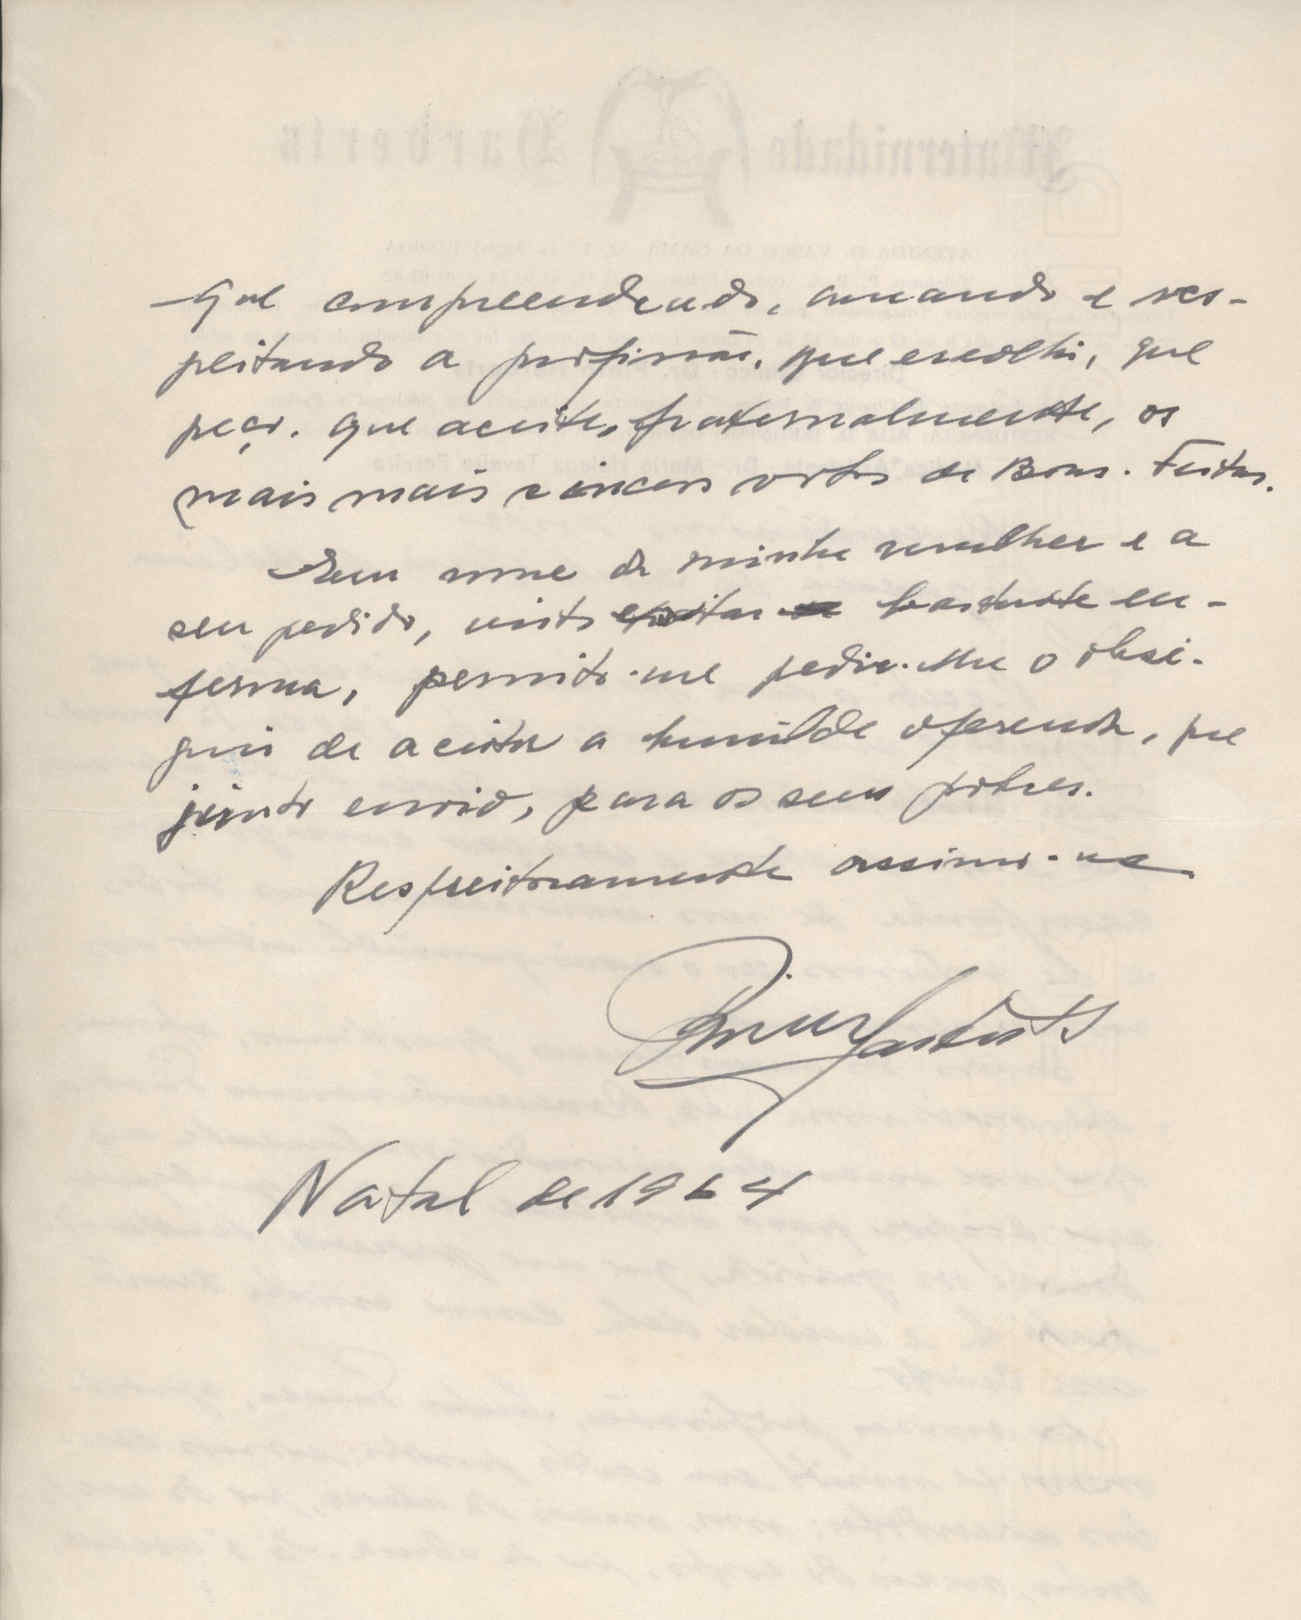 que compreendendo, amando e res-
peitando a profissão, que escolhi, que
peço. que aceite, fraternalmente, os
mais mais sinceros votos de Boas. Festas.
Em nome de minha mulher e a
seu pedido, visto estar bastante en-
ferma, permito-me pedir-lhe o obsé-
quio de aceitar a humilde oferenda, que
junto envio, para os seus pobres.
Respeitosamente assino-me
Natal de 1964